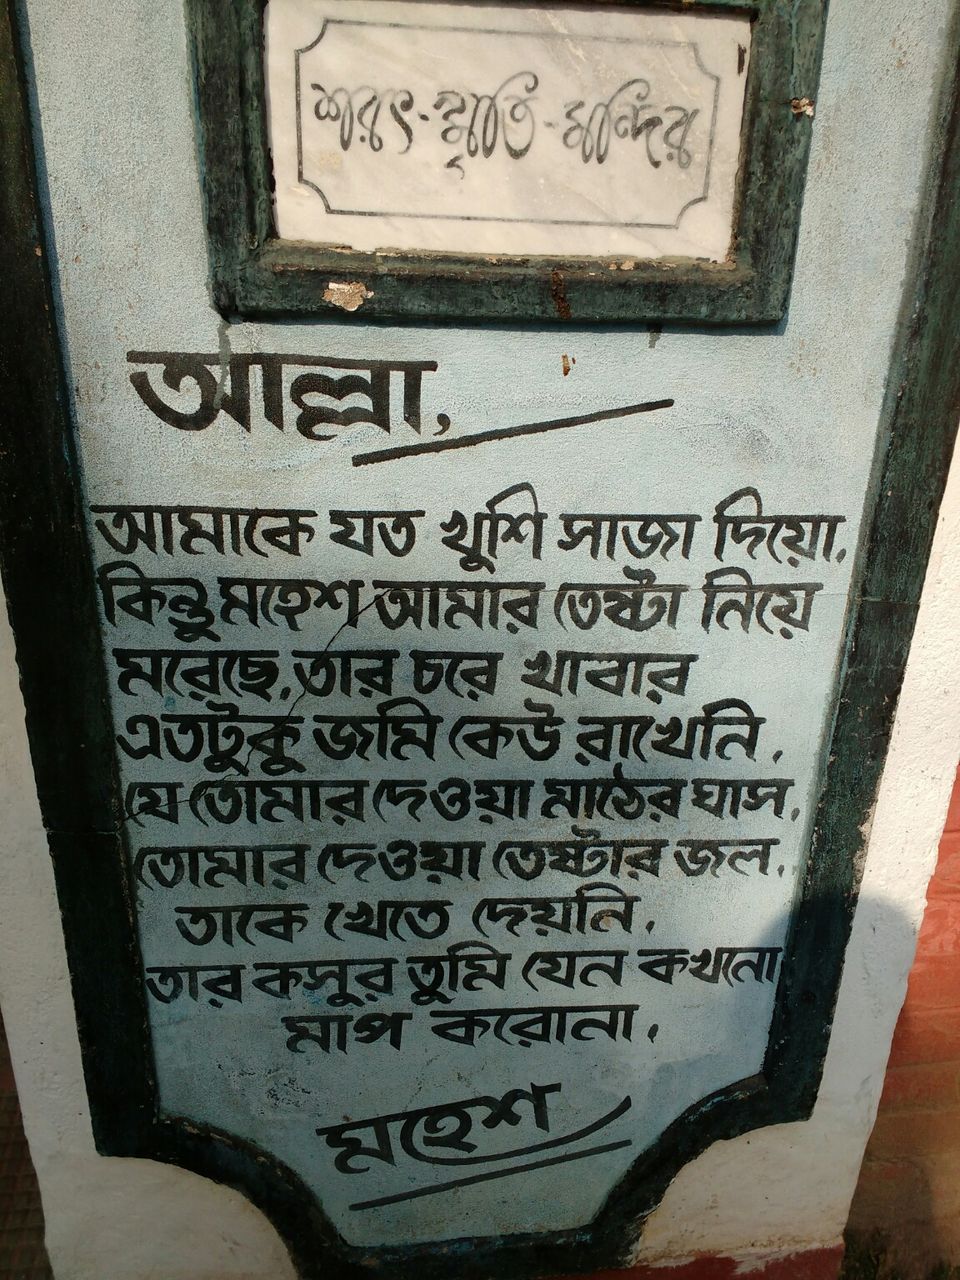 শরৎ-স্মৃতি-মন্দির
আল্লা,
আমাকে যত খুশি সাজা দিয়ো,
কিন্তু মহেশ আমার তেষ্টা নিয়ে
মরেছে, তার চরে খাবার
এতটুকু জমি কেউ রাখেনি,
যে তোমার দেওয়া মাঠের ঘাস,
তোমার দেওয়া তেষ্টার জল,
তাকে খেতে দেয়নি,
তার কসুর তুমি যেন কখনো
মাপ করোনা,
মহেশ